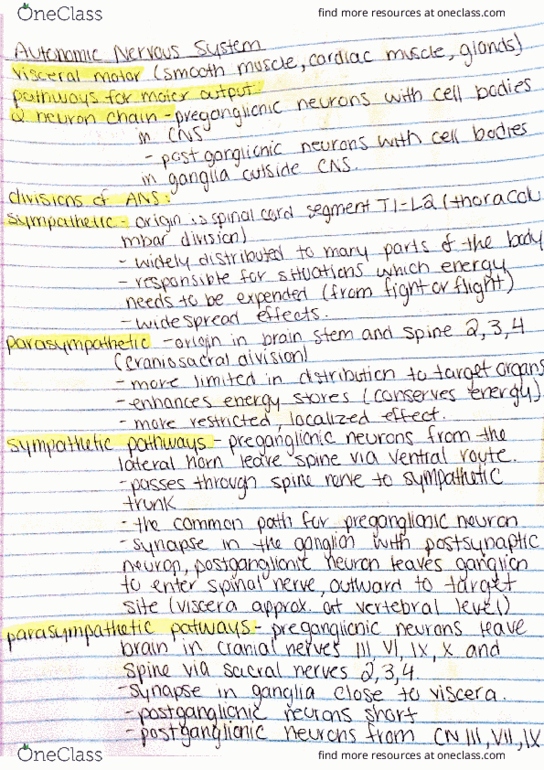 OneClass
find more resources at oneclass.com
Autonomic Nervous System
visceral motor (smooth muscle, cardiac muscle, glands)
pathways for motor output:
2 neuron chain - preganglionic neurons with cell bodies
in CNS
- postganglionic neurons with cell bodies
in ganglia outside CNS.
divisions of ANS:
sympathetic - origin is spinal cord segment T1-L2 (thoracolu
mbar division)
- widely distributed to many parts of the body
- responsible for situations which energy
needs to be expended (from fight or flight)
- widespread effects.
parasympathetic - origin in brain stem and spine 2,3,4
(craniosacral division)
- more limited in distribution to target organs
- enhances energy stores (conserves energy)
- more restricted, localized effect.
sympathetic pathways - preganglionic neurons from the
lateral horn leave spine via ventral route.
- passes through spine nerve to sympathetic
trunk
- the common path for preganglionic neuron
- synapse in the ganglion with postsynaptic
neuron, postganglionic neuron leaves ganglion
to enter spinal nerve, outward to target
site (viscera approx. at vertebral level)
parasympathetic patways - preganglionic neurons leave
brain in cranial nerves III, VI, IX, X and
spine via sacral nerves 2,3,4.
- synapse in ganglia close to viscera.
- postganglionic neurons short
- postganglionic neurons from CN III, VII, IX
OneClass
find more resources at oneclass.com